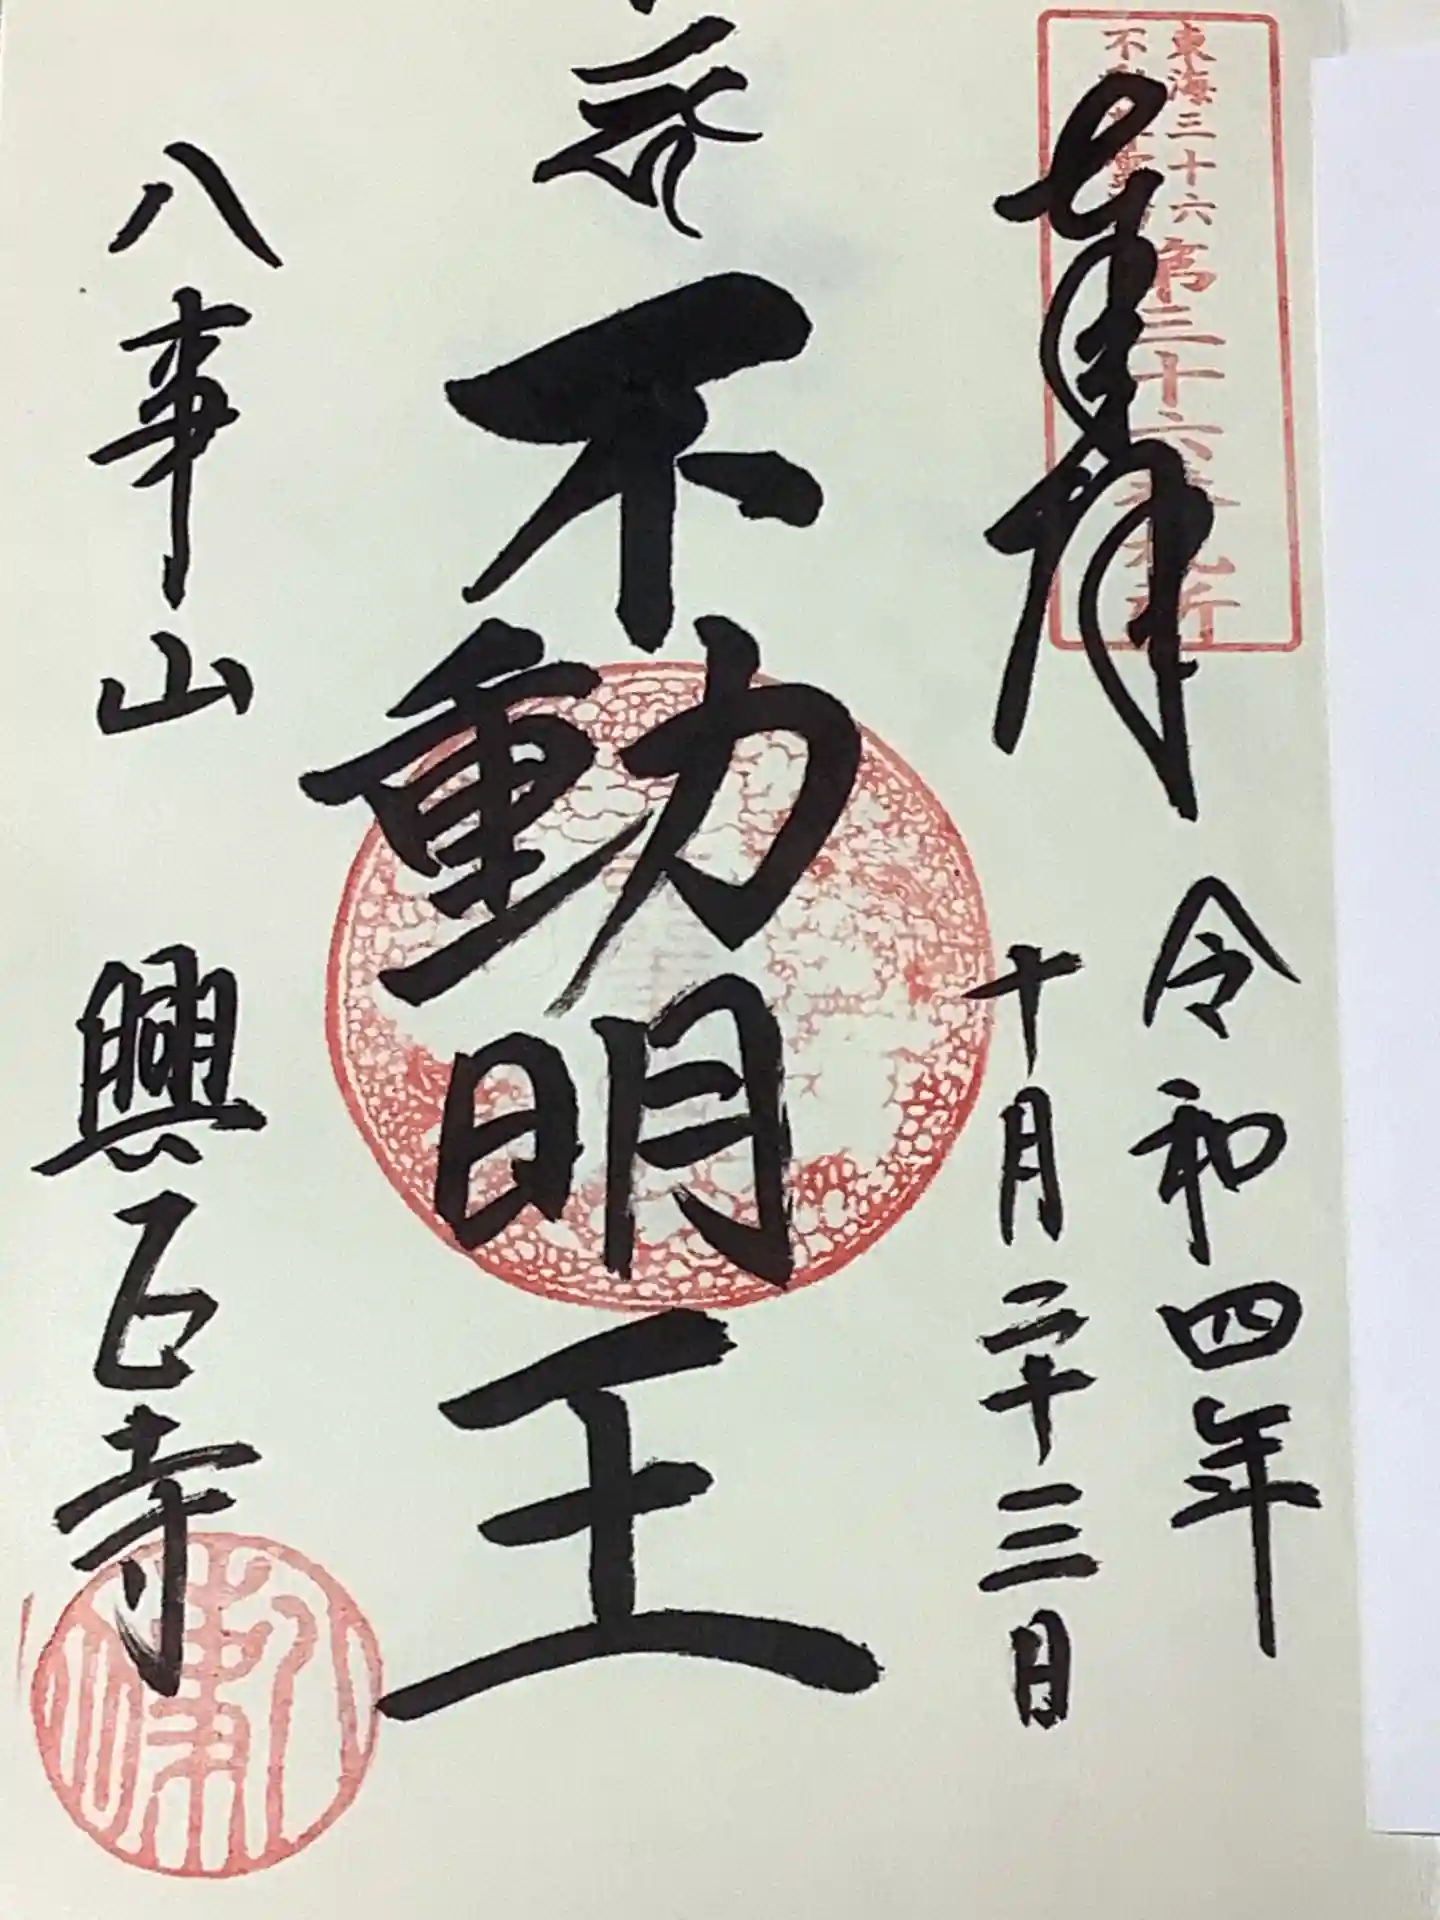 東海三十六
不動尊霊場
第三十六番札所
奉拝
令和四年
十月二十三日
不動明王
八事山
興正寺